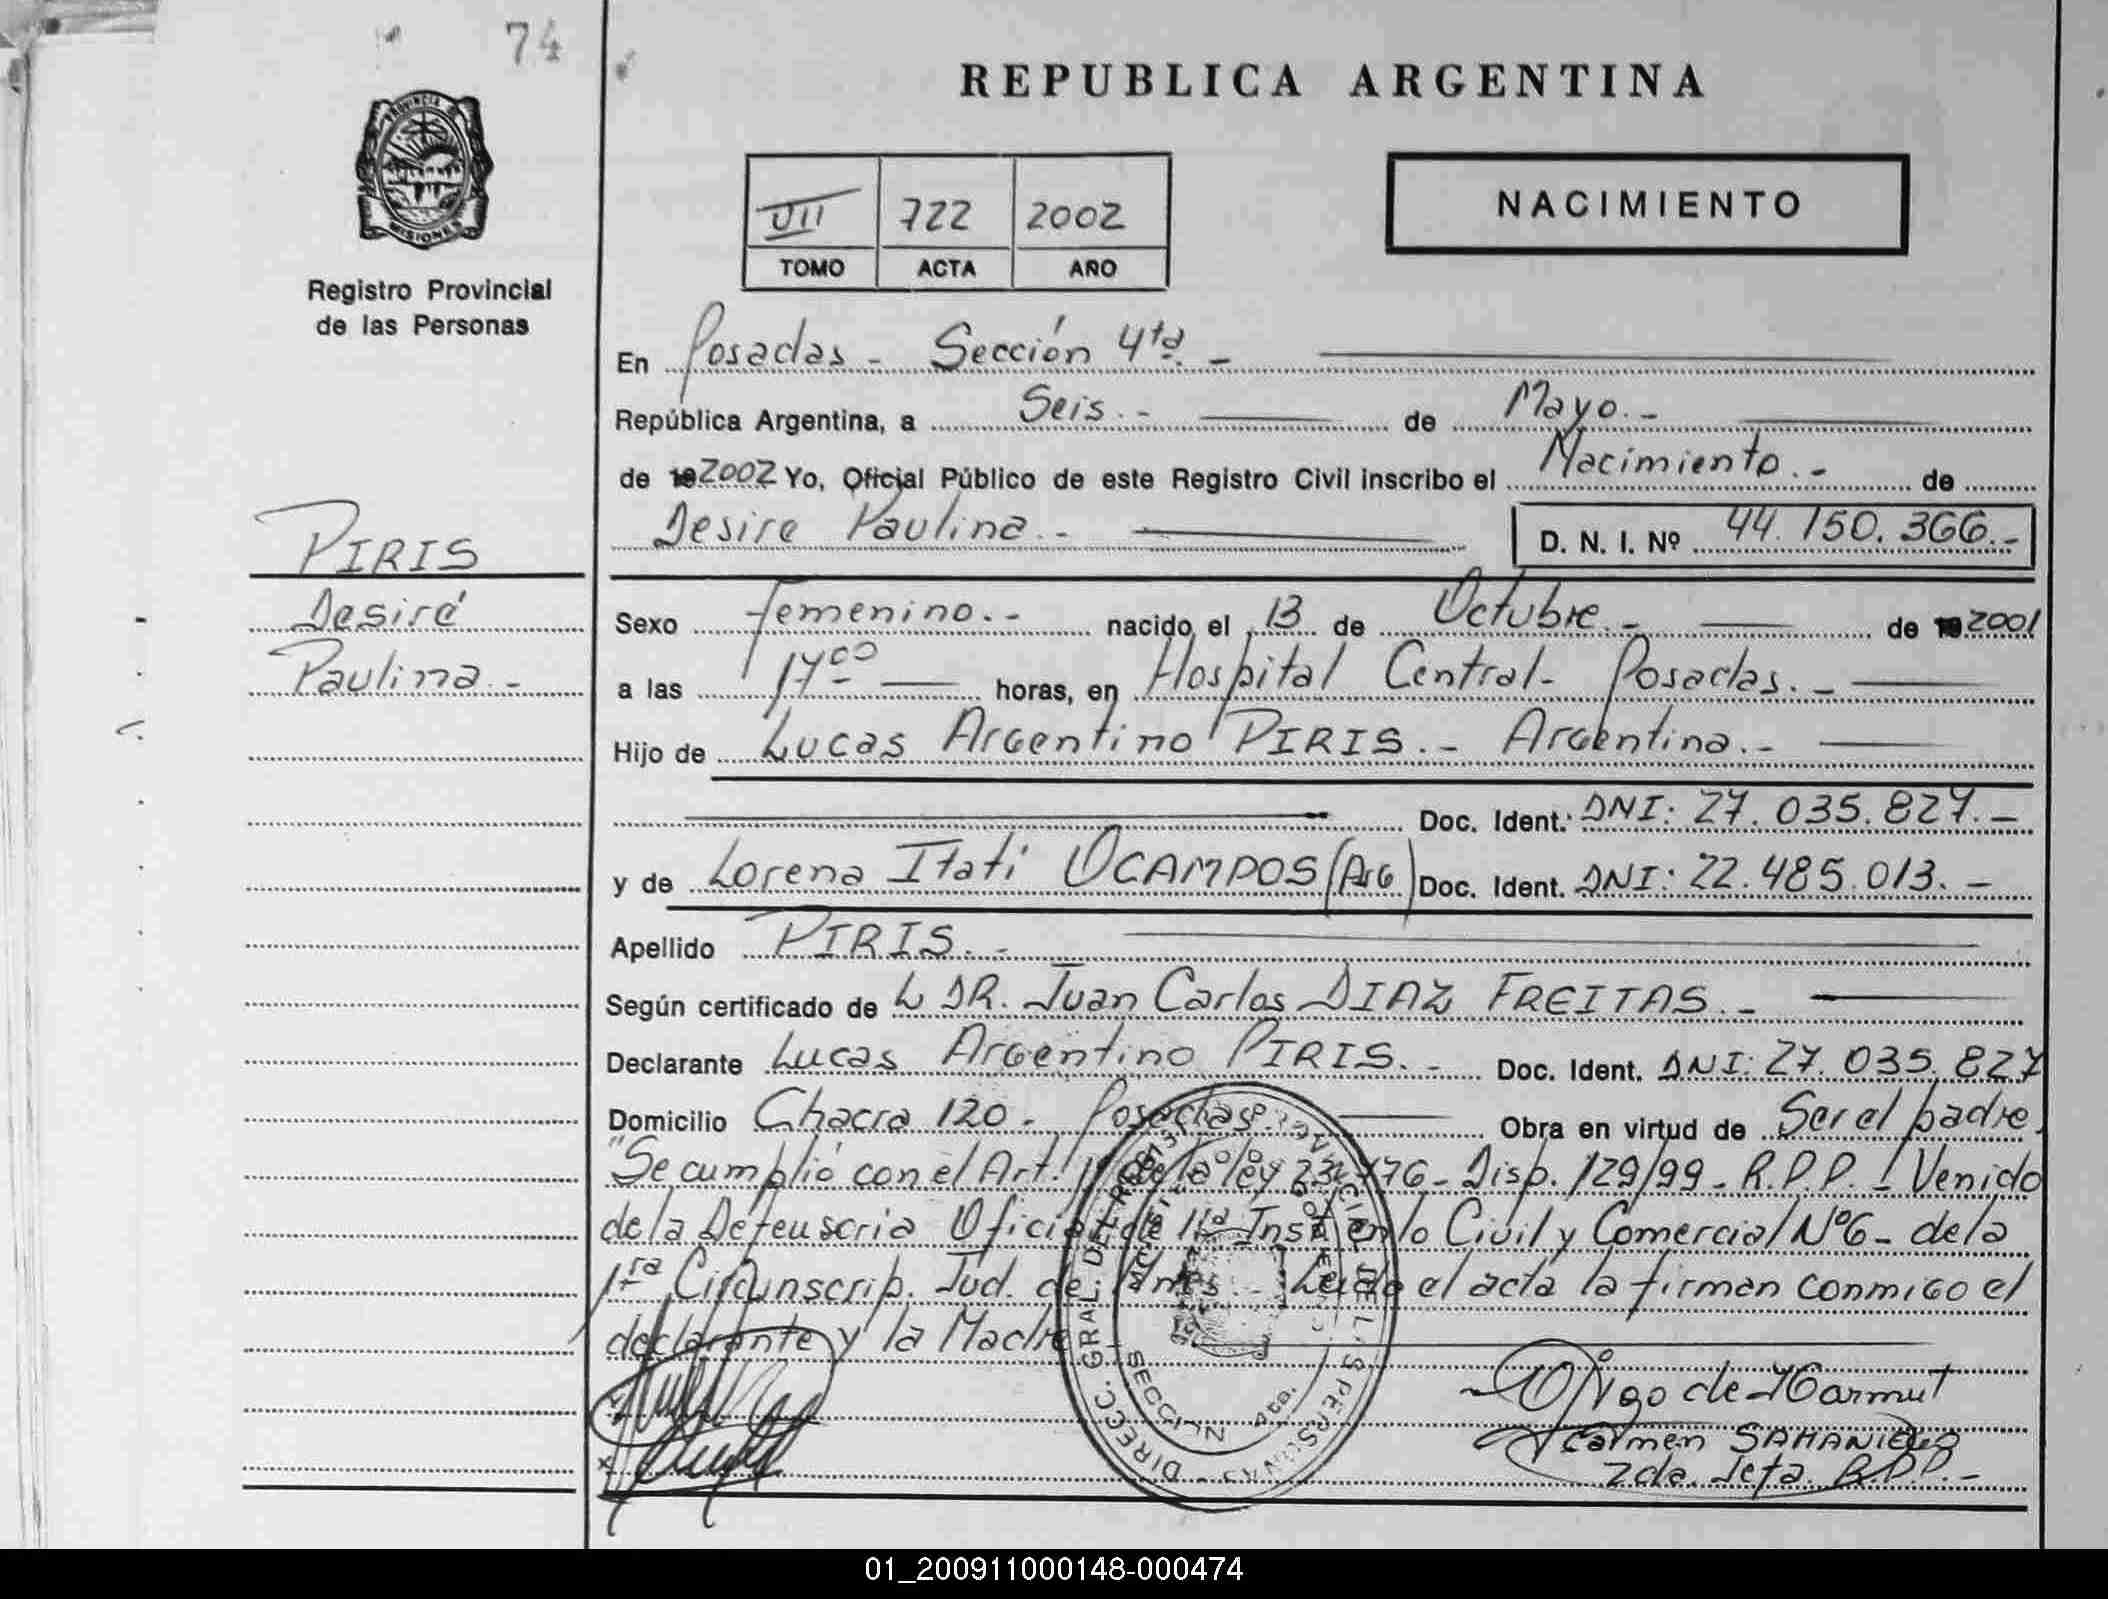 74
REPUBLICA ARGENTINA
PROVINCIA DE MISIONES
Registro Provincial
de las Personas
VII 722 2002
TOMO ACTA AÑO
NACIMIENTO
En Posadas - Sección 4ta. -
República Argentina, a Seis. - de Mayo. -
de 2002 Yo, Oficial Público de este Registro Civil inscribo el Nacimiento. - de
Desire Paulina. - D. N. I. Nº 44.150.366. -
PIRIS
Desiré
Paulina. -
Sexo femenino. - nacido el 13 de Octubre. - de 2001
a las 17 00 horas, en Hospital Central - Posadas. -
Hijo de Lucas Argentino PIRIS. - Argentina. -
Doc. Ident. DNI: 27.035.827. -
y de Lorena Itati OCAMPOS (Arg) Doc. Ident. DNI: 22.485.013. -
Apellido PIRIS. -
Según certificado de L DR. Juan Carlos DIAZ FREITAS. -
Declarante Lucas Argentino PIRIS. - Doc. Ident. DNI: 27.035.827
Domicilio Chacra 120 - Posadas. Obra en virtud de Ser el padre.
"Se cumplió con el Art. de la ley - Disp. 129/99 - R.P.P. Venido
de la Defensoria Oficial de Inst en lo Civil y Comercial Nº6 - de la
1ra Circunscrip. Jud. de Mnes. - Leida el acta la firman conmigo el
declarante y la Madre
DIRECC. GRAL. DEL REG. PROVINCIAL DE LAS PERSONAS
SECCION 4ta.
de Marmut
Carmen SAMANIEGO
2da. Jefa. R.P.P. -
01_200911000148-000474